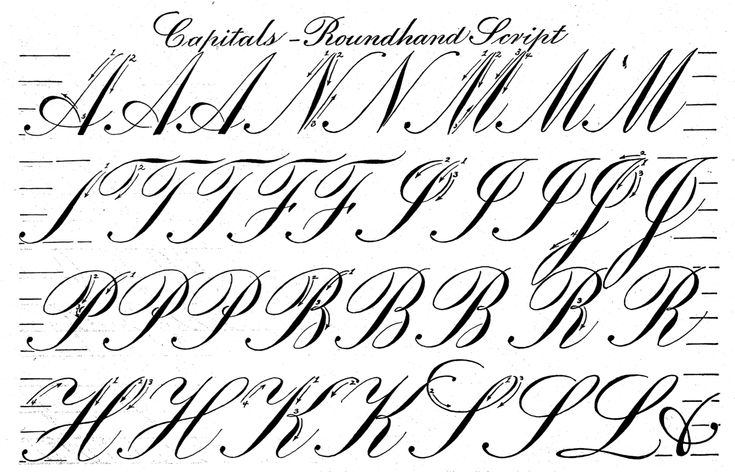 Capitals – Roundhand Script
A A A N N M M M
T T F F I I I J J
P P P B B B R R
H H K K S S L